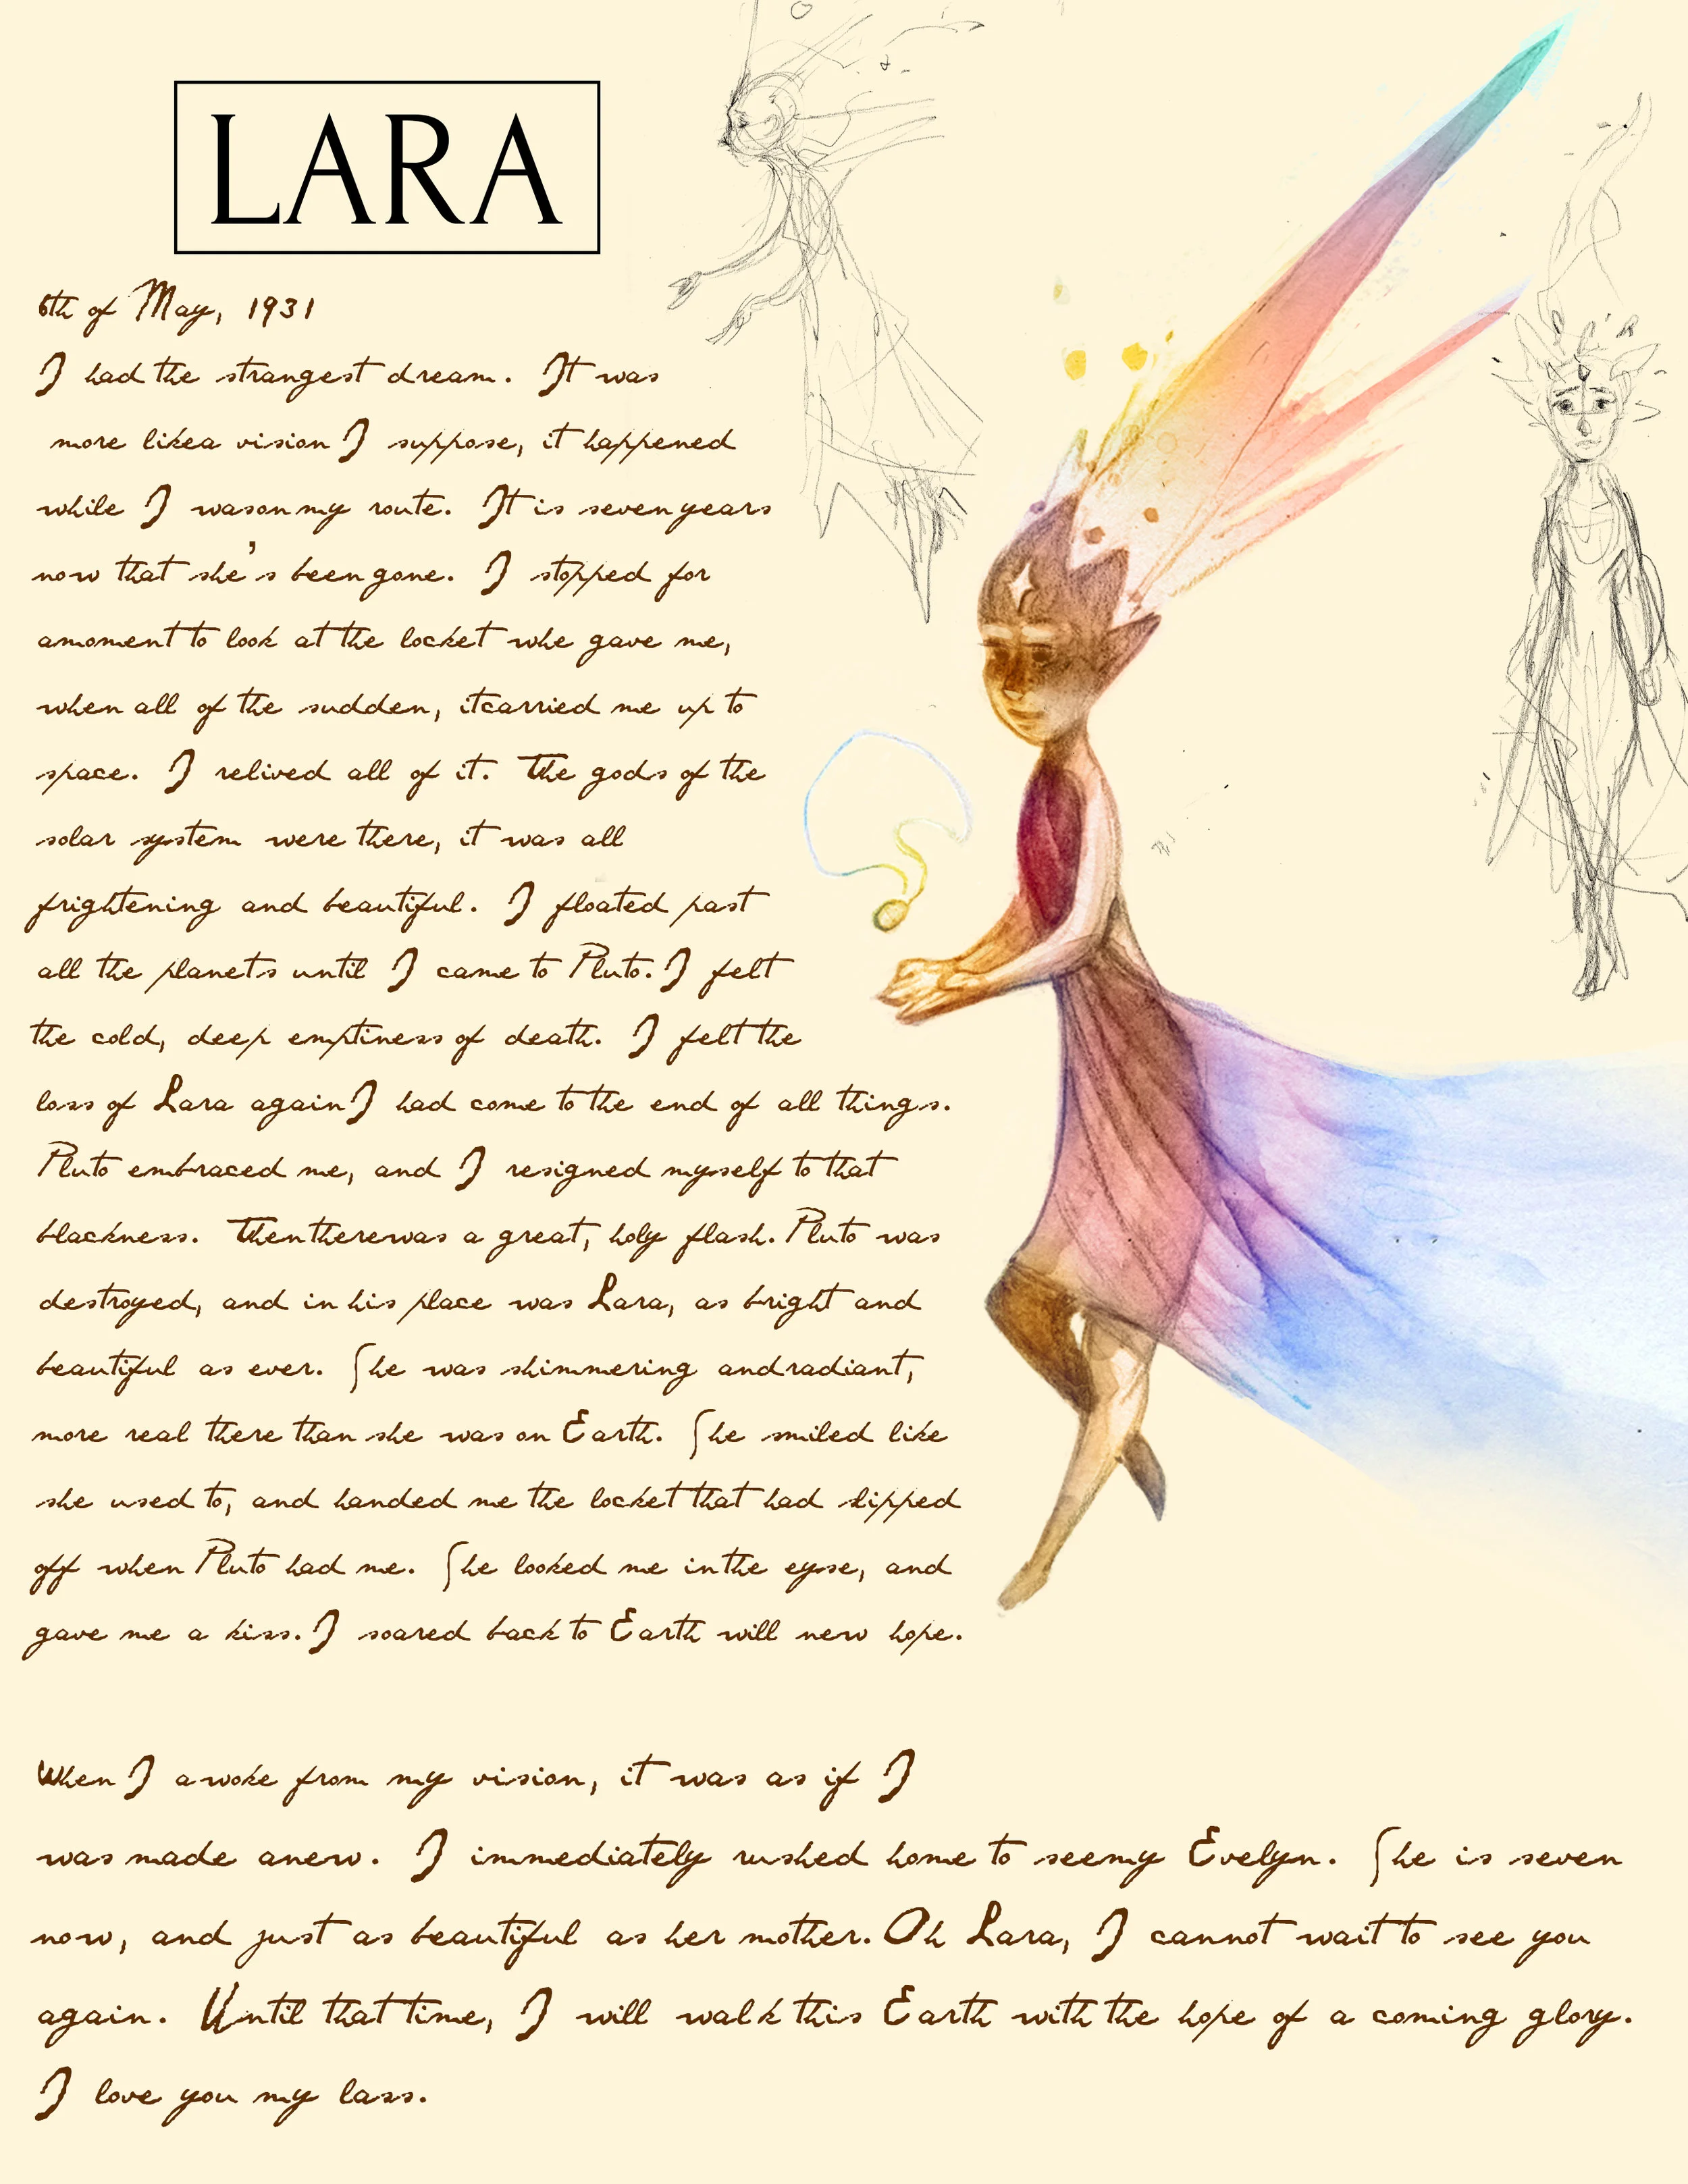 LARA
6th of May, 1931
I had the strangest dream. It was
more likea vision I suppose, it happened
while I wasonmy route. It is sevenyears
now that she's beengone. I stopped for
amoment to look at the locket whe gave me,
when all of the sudden, itcarried me up to
space. I relived all of it. The gods of the
solar system were there, it was all
frightening and beautiful. I floated past
all the planets until I came to Pluto. I felt
the cold, deep emptiness of death. I felt the
loss of Lara again I had come to the end of all things.
Pluto embraced me, and I resigned myself to that
blackness. Thentherewas a great, holy flash. Pluto was
destroyed, and in his place was Lara, as bright and
beautiful as ever. She was shimmering andradiant,
more real there than she was on Earth. She smiled like
she used to, and handed me the locket that had slipped
off when Pluto had me. She looked me in the eyse, and
gave me a kiss. I soared back to Earth will new hope.
When I awoke from my vision, it was as if I
was made anew. I immediately rushed home to seemy Evelyn. She is seven
now, and just as beautiful as her mother. Oh Lara, I cannot wait to see you
again. Until that time, I will walk this Earth with the hope of a coming glory.
I love you my lass.